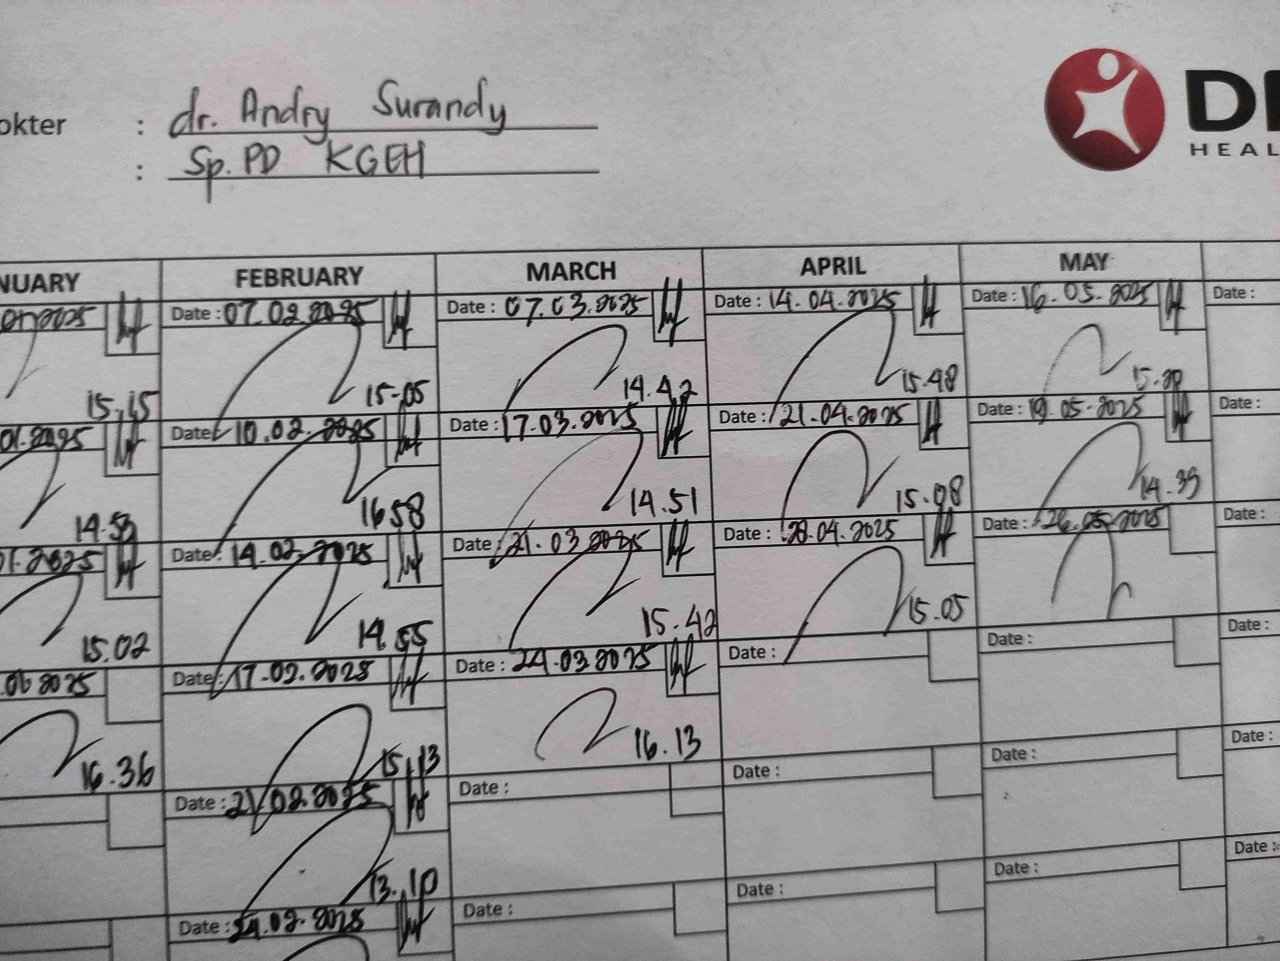 okter : dr. Andry Surandy
: Sp.PD KGEH
HEAL
NUARY FEBRUARY MARCH APRIL MAY
Date : 07.02.2025 Date : 07.03.2025 Date : 14.04.2025 Date : 16.05.2025 Date :
15.15 15-05 14.42 15.48
01.2025 Date 10.02.2025 Date : 17.03.2025 Date : 21.04.2025 Date : 19.05.2025 Date :
14.53 1658 14.51 15.08 14.39
01.2025 Date : 14.02.2025 Date : 21.03.2025 Date : 28.04.2025 Date : 26.05.2025 Date :
15.02 14.55 15.42 15.05
2025 Date : 17.02.2025 Date : 24.03.2025 Date : Date : Date :
16.36 15.13 16.13
Date : 21.02.2025 Date : Date : Date : Date :
13.10
Date : 24.02.2025 Date : Date : Date : Date :